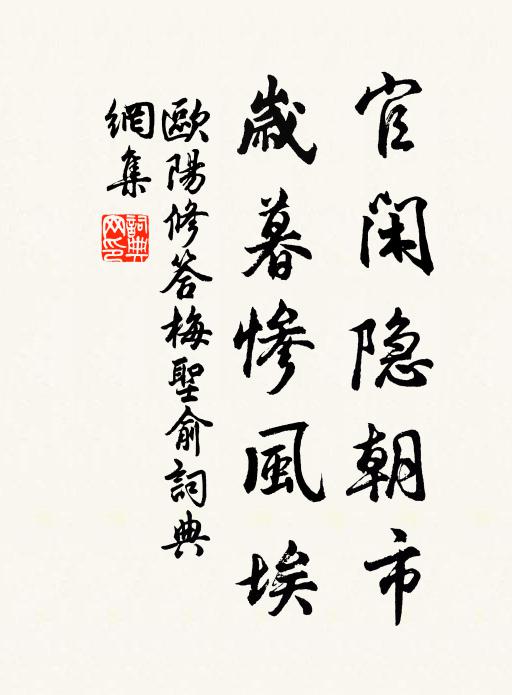 官闲隐朝市
歲暮慘風埃
歐陽修答梅聖俞詞典
網集
詞典
网印